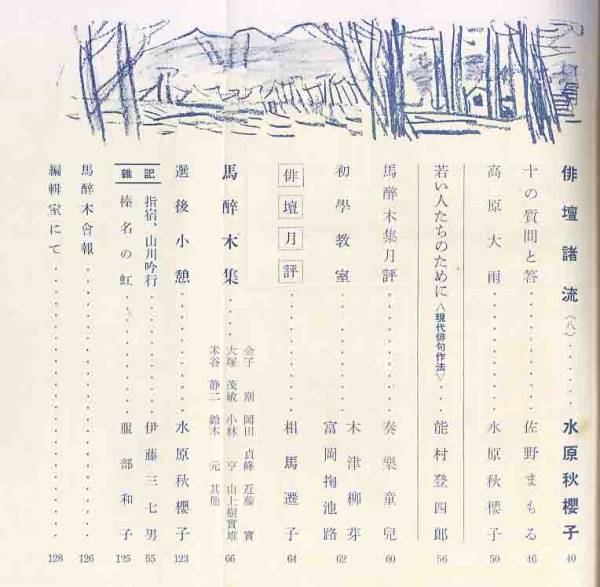 俳壇諸流（八）……水原秋櫻子 40
十の質問と答……佐野まもる 46
高原大雨……水原秋櫻子 50
若い人たちのために〈現代俳句作法〉……能村登四郎 56
馬醉木集月評……奏樂童兒 60
初學教室……木津柳芽
富岡掬池路 62
俳壇月評……相馬遷子 64
馬醉木集……
金子潮 岡田貞峰 近藤實
大塚茂敏 小林亨 山上樹實雄
米谷靜二 鈴木元 其他
66
選後小憩……水原秋櫻子 123
雜記
指宿、山川吟行……伊藤三七男 55
榛名の虹……服部和子 125
馬醉木會報…… 126
編輯室にて…… 128